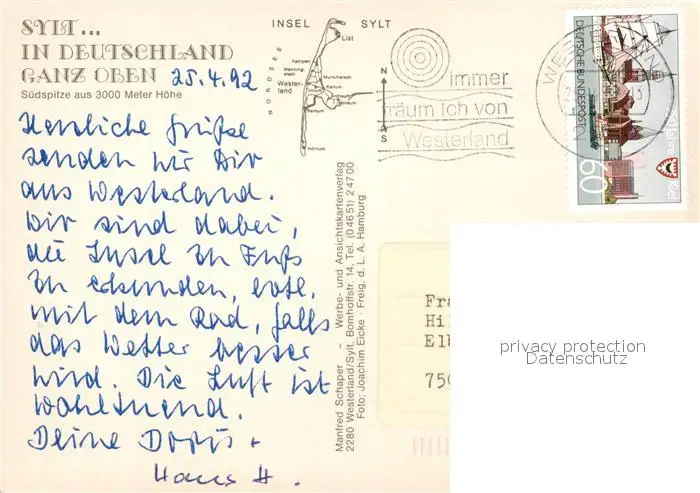 SYLT...
IN DEUTSCHLAND
GANZ OBEN 25.4.92
Südspitze aus 3000 Meter Höhe
Herzliche Grüße
senden wir Dir
aus Westerland.
Wir sind dabei,
die Insel zu Fuß
zu erkunden, evtl.
mit dem Rad, falls
das Wetter besser
wird. Die Luft ist
wohltuend.
Deine Doris +
Hans H.
INSEL SYLT
NORDSEE
List
Kampen
Wenningstedt
Westerland
Munkmarsch
Keitum
Archsum
Morsum
Rantum
Hörnum
N
S
immer
träum ich von
Westerland
WESTERLAND
DEUTSCHE BUNDESPOST
60
Kiel
Manfred Schaper - Werbe- und Ansichtskartenverlag
2280 Westerland/Sylt, Bomhoffstr. 14, Tel. (04651) 24700
Foto: Joachim Eicke · Freig. d. L. A. Hamburg
Fra
Hil
Elb
750
privacy protection
Datenschutz